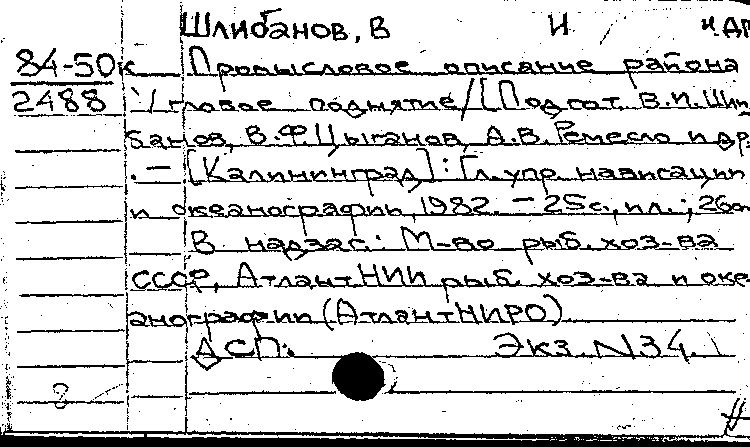 Шлибанов, В И и др
84-50к Промысловое описание района
2488 Угловое поднятие/[Подгот. В.И. Шли
банов, В.Ф. Цыганов, А.В. Ремесло и др.
. — [Калининград]: Гл. упр. навигации
и океанографии, 1982. — 25с., ил.; 26см
В надзаг.: М-во рыб. хоз-ва
СССР, АтлантНИИ рыб. хоз-ва и оке
анографии (АтлантНИРО).
ДСП. Экз. N34.
8